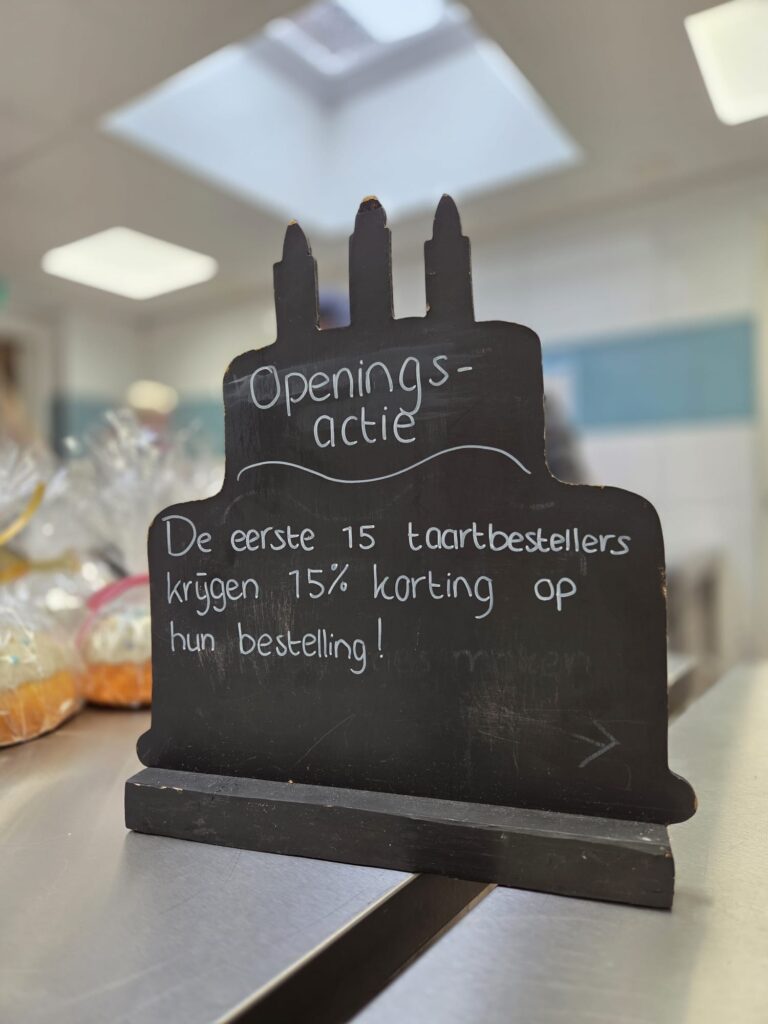 Openings-
actie
De eerste 15 taartbestellers
krijgen 15% korting op
hun bestelling!